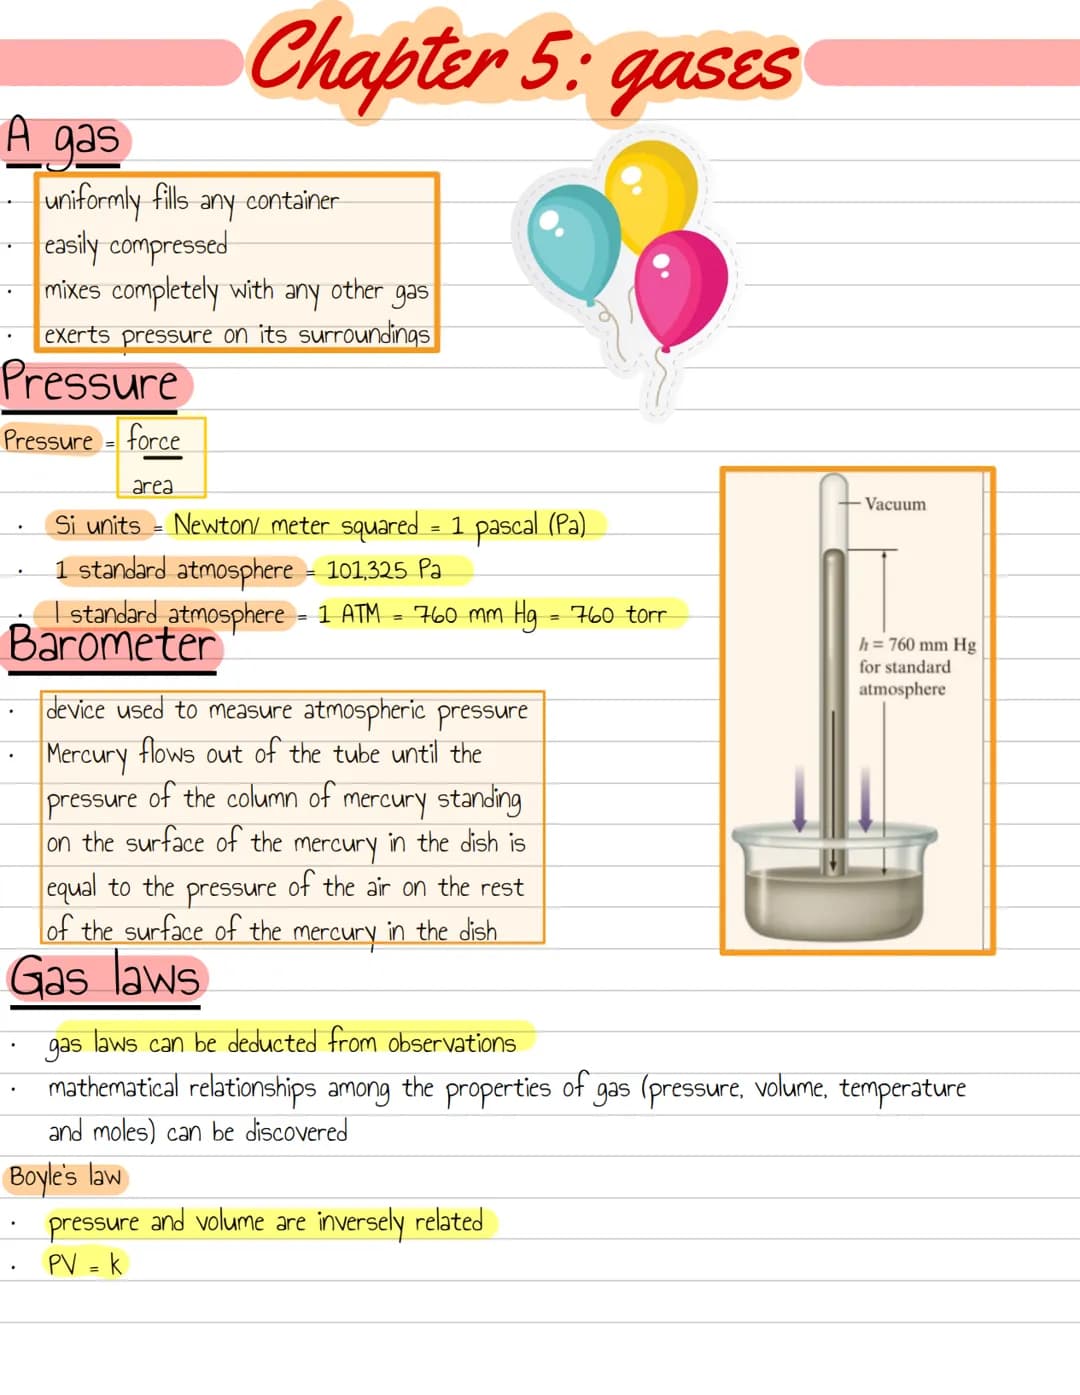 Chapter 5: gases
A gas
· uniformly fills any container
· easily compressed
· mixes completely with any other gas
· exerts pressure on its surroundings
Pressure
Pressure = force
area
· Si units = Newton/ meter squared = 1 pascal (Pa)
· 1 standard atmosphere = 101,325 Pa
· 1 standard atmosphere = 1 ATM = 760 mm Hg = 760 torr
Barometer
· device used to measure atmospheric pressure
· Mercury flows out of the tube until the
pressure of the column of mercury standing
on the surface of the mercury in the dish is
equal to the pressure of the air on the rest
of the surface of the mercury in the dish
Vacuum
h = 760 mm Hg
for standard
atmosphere
Gas laws
· gas laws can be deducted from observations
· mathematical relationships among the properties of gas (pressure, volume, temperature
and moles) can be discovered
Boyle's law
· pressure and volume are inversely related
· PV = k